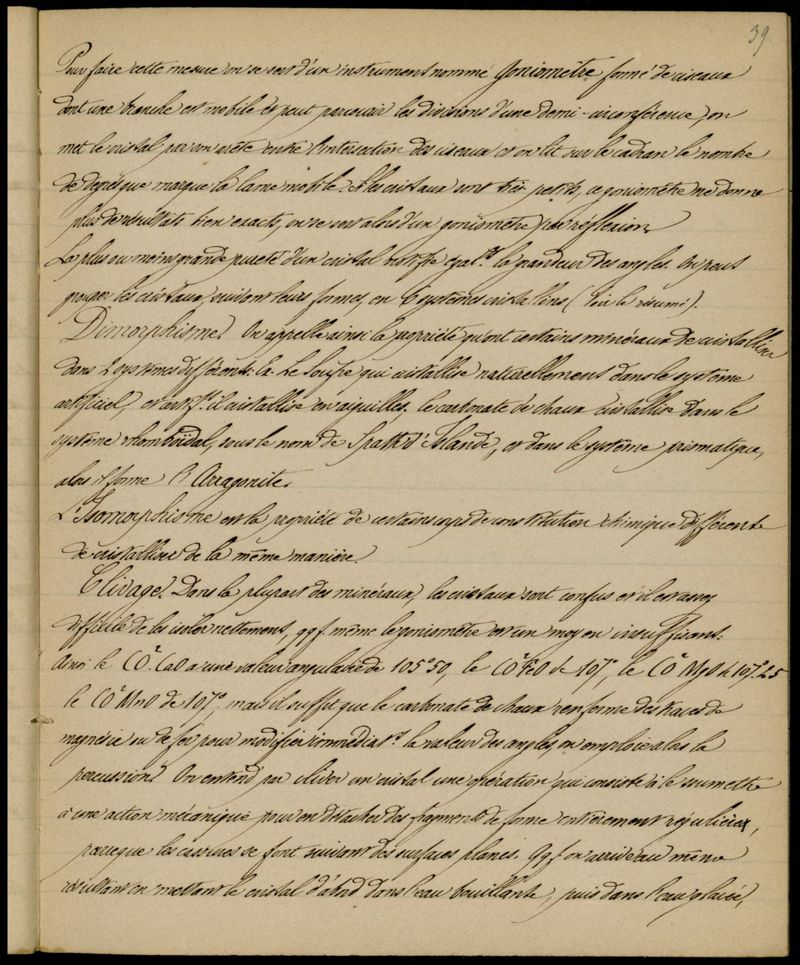 39
Pour faire cette mesure on se sert d'un instrument nommé Goniomètre formé de ciseaux
dont une branche est mobile et peut parcourir les divisions d'une demi-circonférence, on
met le cristal par un arête entre l'intersection des ciseaux et on lit sur le cadran le nombre
de degrés que marque la lame mobile. Si les cristaux sont très petits, ce goniomètre ne donne
plus de résultats bien exacts, on se sert alors d'un goniomètre par réflexion.
La plus ou moins grande pureté d'un cristal égalt. la grandeur des angles. On peut
grouper les cristaux, suivant leurs formes, en 6 systèmes cristallins (Voir le résumé).
Dimorphisme. On appelle ainsi la propriété qu'ont certains minéraux de cristalliser
dans 2 systèmes différents. Ex. Le Soufre qui cristallise naturellement dans le système
artificiel, et il cristallise en aiguilles. Le carbonate de chaux cristallise dans le
système rhomboïdal, sous le nom de Spath d'Islande, et dans le système prismatique,
alors il forme l'Arragonite.
L'Isomorphisme est la propriété de certains corps de constitution chimique différente
de cristalliser de la même manière.
Clivage. Dans la plupart des minéraux, les cristaux sont confus et il est assez
difficile de les isoler nettement, qqf. même le goniomètre est un moyen insuffisant.
Ainsi le CO² CaO a une valeur angulaire de 105°50, le CO² FeO de 107°, le CO² MgO de 107°25
le CO² MnO de 107°, mais il suffit que le carbonate de chaux renferme des traces de
magnésie ou de fer pour modifier immédiatt. la valeur des angles, on emploie alors la
percussion. On entend par cliver un cristal une opération qui consiste à le soumettre
à une action mécanique pour en détacher des fragments de forme entièrement régulière,
parceque les cassures se font suivant des surfaces planes. Qqf. on arrive au même
résultat en mettant le cristal d'abord dans l'eau bouillante, puis dans l'eau glacée,